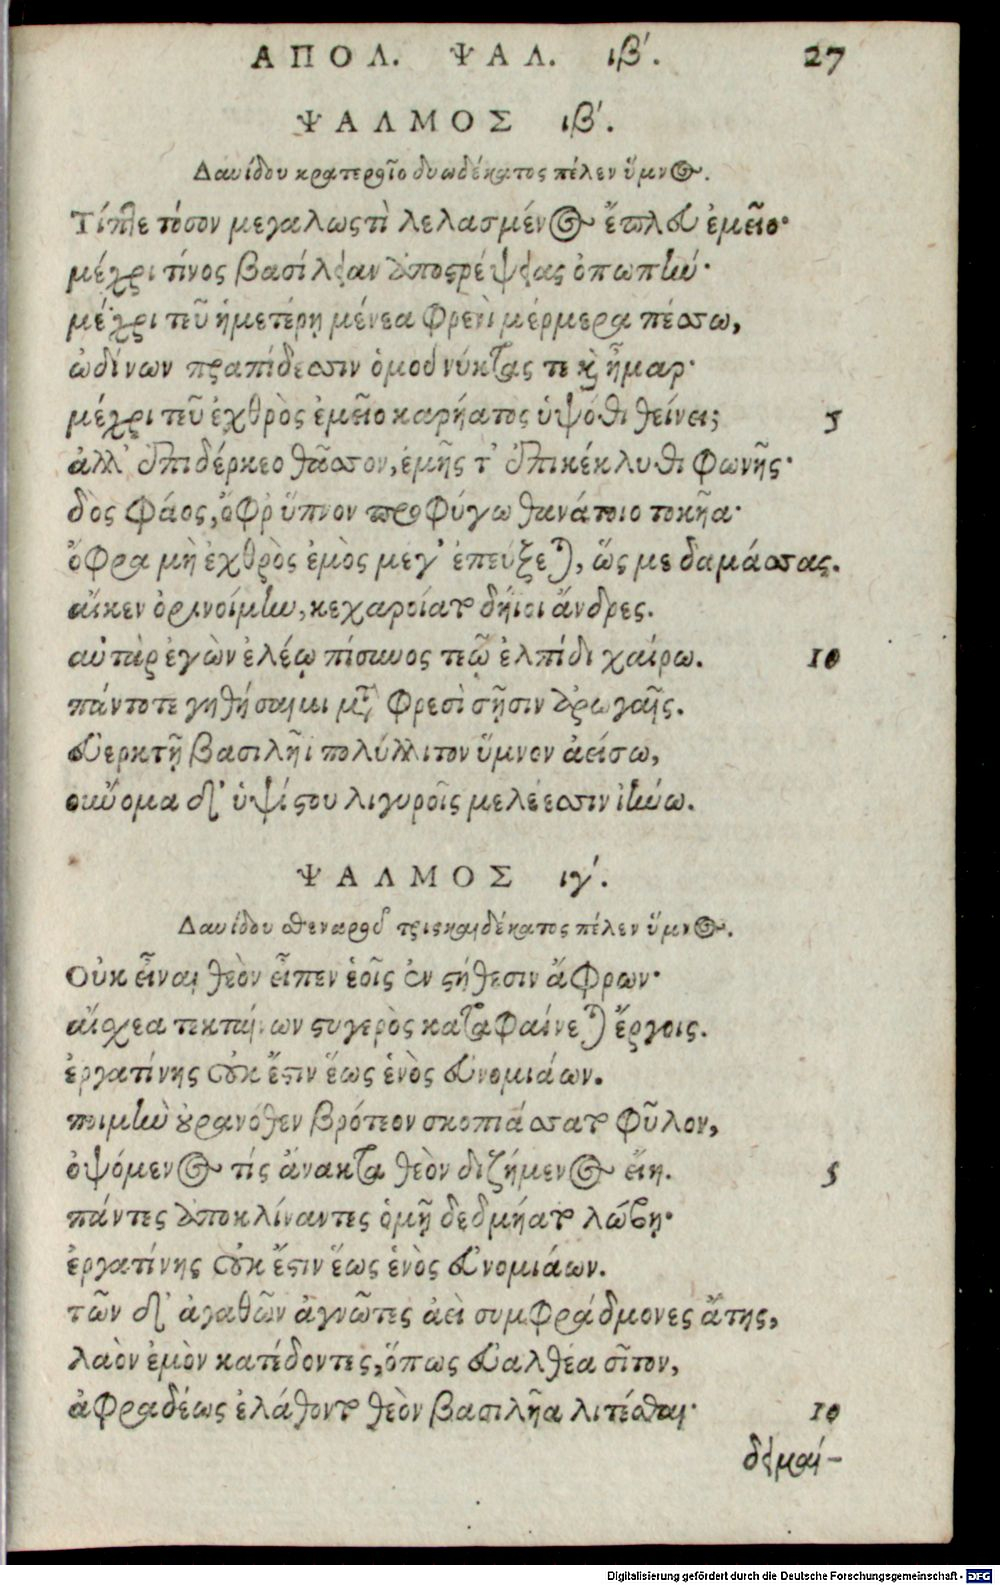 ΑΠΟΛ. ΨΑΛ. ιβ'. 27
ΨΑΛΜΟΣ ιβ'.
Δαυίδου κρατεροῖο δυωδέκατος πέλεν ὕμνος.
Τίπτε τόσον μεγαλωστὶ λελασμένος ἔπλευ ἐμεῖο·
μέχρι τίνος βασίλειαν ἀποστρέψειας ὀπωπήν·
μέχρι τεῦ ἡμετέρῃ μένεα φρενὶ μέρμερα πέσσω,
ὠδίνων πραπίδεσσιν ὁμοῦ νύκτας τε καὶ ἦμαρ·
μέχρι τεῦ ἐχθρὸς ἐμεῖο καρήατος ὑψόθι θείνει; 5
ἀλλ' ἐπιδέρκεο θᾶσσον, ἐμῆς τ' ἐπικέκλυθι φωνῆς·
δὸς φάος, ὄφρ' ὕπνον προφύγω θανάτοιο τοκῆα·
ὄφρα μὴ ἐχθρὸς ἐμὸς μέγ' ἐπεύξεται, ὥς με δαμάσσας.
αἴκεν ὀρινοίμην, κεχαροίατο δήϊοι ἄνδρες.
αὐτὰρ ἐγὼν ἐλέῳ πίσυνος τεῷ ἐλπίδι χαίρω. 10
πάντοτε γηθήσαιμι μετὰ φρεσὶ σῇσιν ἀρωγαῖς.
εὐερκτῇ βασιλῆι πολύλλιτον ὕμνον ἀείσω,
οὔνομα δ' ὑψίστου λιγυροῖς μελέεσσιν ὑμνήσω.
ΨΑΛΜΟΣ ιγ'.
Δαυίδου σθεναροῦ τρισκαιδέκατος πέλεν ὕμνος.
Οὐκ εἶναι θεὸν εἶπεν ἑοῖς ἐν στήθεσιν ἄφρων·
αἴσχεα τεκταίνων στυγερὸς καταφαίνεται ἔργοις.
ἐργατίνης οὐκ ἔστιν ἕως ἑνὸς εὐνομιάων.
ποιμὴν οὐρανόθεν βρότεον σκοπιάσσατο φῦλον,
ὀψόμενος τίς ἄνακτα θεὸν διζήμενος εἴη. 5
πάντες ἀποκλίναντες ὁμῇ δεδμήατο λώβῃ·
ἐργατίνης οὐκ ἔστιν ἕως ἑνὸς εὐνομιάων.
τῶν δ' ἀγαθῶν ἀγνῶτες ἀεὶ συμφράδμονες ἄτης,
λαὸν ἐμὸν κατέδοντες, ὅπως εὐαλθέα σῖτον,
ἀφραδέως ἐλάθοντο θεὸν βασιλῆα λιτέσθαι· 10
δειμαί-
Digitalisierung gefördert durch die Deutsche Forschungsgemeinschaft - DFG